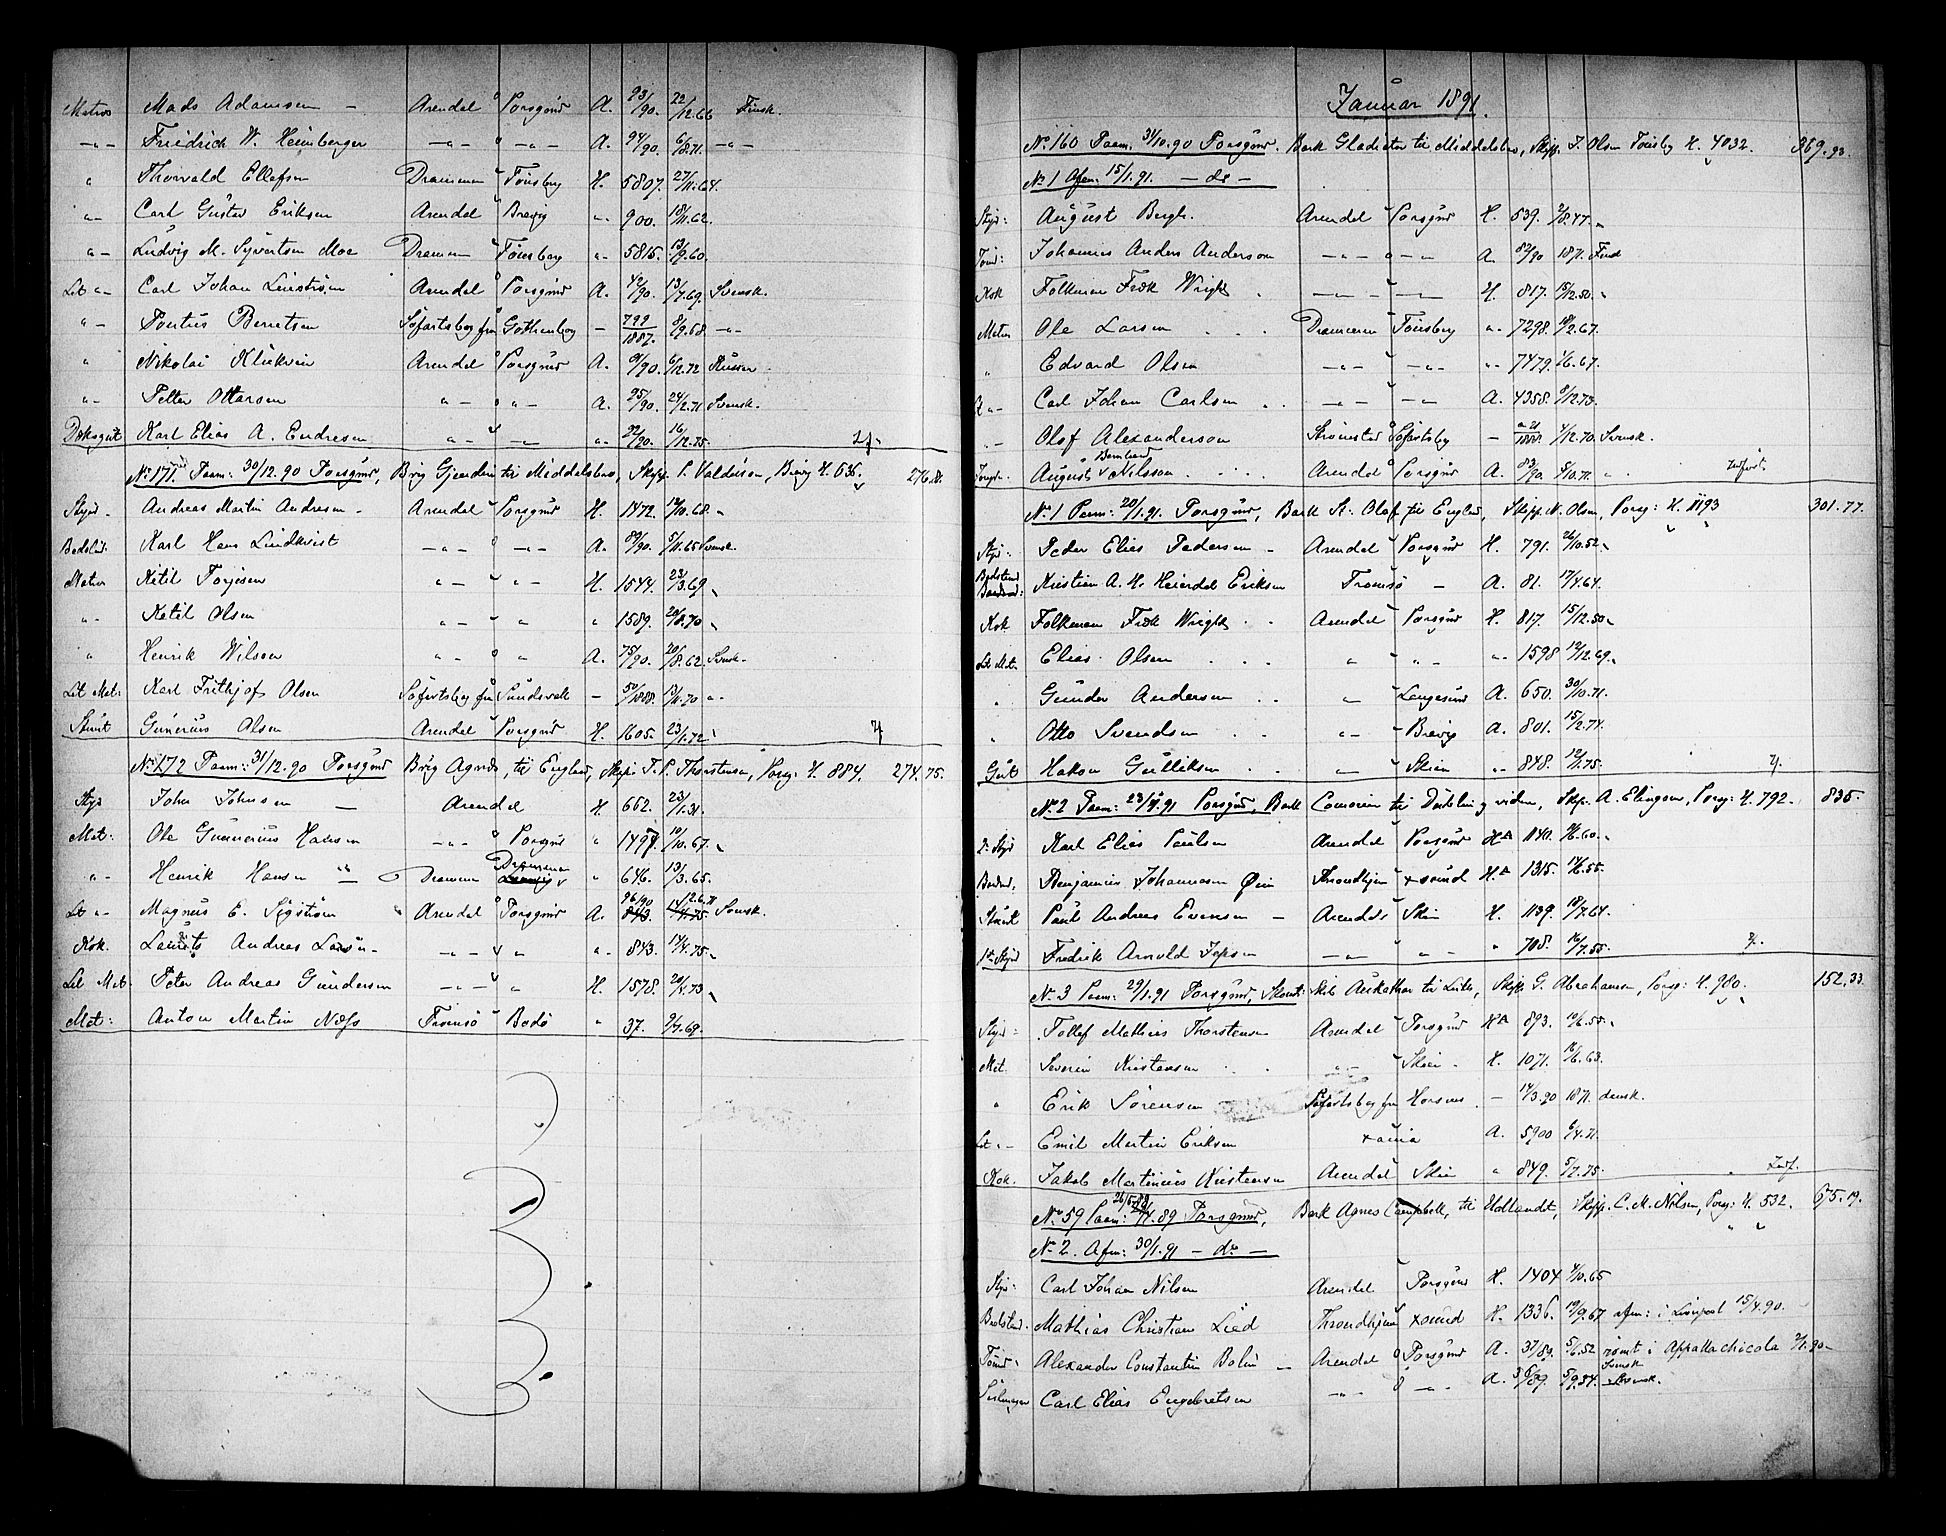 Matros Mads Adamsen - Arendal Porsgrund A. 93/90. 22/12.66 Finsk.
-"- Friedrich W. Heimberger -"- " -"- A. 94/90. 6/8.71. -"-
" Thorvald Ellefsen Drammen Tønsberg H. 5807. 27/11.64.
"- Carl Gustav Eriksen Arendal Brevig "- 900. 18/11.62.
"- Ludvig M. Syvertsen Moe Drammen Tønsberg "- 5815. 13/9.60.
Let "- Carl Johan Linström Arendal Porsgrund A. 42/90. 13/7.69. Svensk.
"- Pontus Berntsen Søfartsbog fra Gothenborg - 799/1887. 8/9.68. -"-
" Nikolai Klukvin Arendal Porsgrund A. 91/90. 6/12.72 Russer
"- Petter Ottersen "- " "- A. 95/90. 24/2.71 Svensk.
Dæksgut Karl Elias A. Endresen "- -"- "- 22/90. 16/12.75.
No. 171. Paam: 30/12.90 Porsgrund, Brig Gjendin til Middelsbro, Skipp. P. Valdersen, Brevig H. 636. 276.18.
Styrm. Andreas Martin Andresen - Arendal Porsgrund H. 1472. 12/10.68. "
Bødslm. Karl Hans Lindkvist -"- -"- A. 89/90. 5/11.65 Svensk.
Matros Ketil Torjesen "- " "- H. 1544. 23/3.69 "
"- Ketil Olsen "- " " " 1589. 20/8.70 "
" Henrik Wilson "- " " A. 75/90. 20/8.62. Svensk.
Let Mat: Karl Frithjof Olsen Søfartsbog fra Sundsvall - 50/1888. 13/11.70 "-
Stuert Gunerius Olsen Arendal Porsgrund H. 1605. 23/1.72
No. 172 Paam: 31/12.90 Porsgrund Brig Agnes, til England, Skipp. T. P. Thorstensen, Porsg: H. 884. 274.75.
Styr John Johnsen - Arendal H. 662. 23/1.31.
Mat: Ole Gunnerius Hansen -"- Porsgrund " 1497. 10/10.67. "
"- Henrik Hansen - Drammen Drammen " 646. 13/3.65.
Let "- Magnus E. Sigström " Arendal Porsgrund A. 96/90 12.6.71 Svensk.
Kok. Lauritz Andreas Larsen - -"- " " "- 843. 14/4.75. "
Let Mat. Peter Andreas Gundersen -"- " H. 1578. 20/4.73 "
Mat: Anton Martin Næss Tromsø Bodø " 37. 9/7.68.
Januar 1891.
No. 160 Paam. 31/10.90 Porsgrund. Bark Gladiator til Middelsbro, Skipp. J. Olsen Tønsberg H. 4032. 369.93.
No. 1 Afm: 15/1.91. - do -
Styr: August Bergh. Arendal Porsgrund H. 539. 2/8.47. "
Tømd: Johannes Anders Anderson -"- " -"- A. 82/90 1871. Find
Kok Folkman Fredk Wright . -"- -"- H. 817. 15/12.50. "
Matros Ole Larsen . . . Drammen Tønsberg "- 7298. 18/2.67.
" Edvard Olsen -"- -"- "- 7479. 1/6.67.
Let "- Carl Johan Carlsen . . -"- -"- A. 4358. 8/12.73.
"- Olof Alexanderson Strømstad Søfartsbog - 1888. 4/12.70. Svensk.
Jungm. August Bernhard Nilsson . . . Arendal Porsgrund A. 83/90. 5/10.71. "
No. 1 Paam: 20/1.91. Porsgrund, Bark St. Olaf til England, Skipp. N. Olsen, Porsg: H. 1193 301.77.
Styr: Peder Elias Pedersen - Arendal Porsgrund H. 791. 26/10.52 "
Bødslmd Kristian A. H. Heierdal Eriksen Tromsø - A. 81. 17/4.64.
Kok Folkman Fredk Wright . . Arendal Porsgrund H. 817 15/12.50 "
Let Mat. Elias Olsen . . . " " "- "- 1598 12/12.69 "
" Gunder Andersen . . " Langesund A. 650. 30/10.71.
" Otto Svendsen . . "- Brevig A. 801. 15/2.74.
Gut Hakon Gulliksen . . "- Skien "- 848. 12/1.75.
No. 2 Paam: 23/1.91 Porsgrund, Bark Comorin til Dublin og videre, Skip. A. Ellingsen, Porsg: H. 792. 835.
2. Styr Karl Elias Paulsen Arendal Porsgrund HA 1140. 2/6.60. "
Benjamin Johannesen Øien Throndhjem xsund HA 1315. 14/6.55.
Stuert Paul Andreas Evensen - Arendal Skien H. 1139. 18/7.64.
1te Styr Fredrik Arnold Jepsen -"- " "- " 708. 16/7.55.
No. 3 Paam: 29/1.91 Porsgrund, Skonn: Skib Aukathor til Leith, Skipp. G. Abrahamsen, Porsg: H. 980. 152.33.
Styr: Tollef Mathias Thorstensen Arendal Porsgrund HA 893. 10/6.55. "
Mat. Severin Kristensen . . "- Skien - H. 1071. 16/6.63.
" Erik Sørensen Søfartsbog fra Horsens - 14/3.90 1871. dansk.
Let "- Emil Martin Eriksen xania A. 5900 6/4.71.
Kok. Jakob Martinius Kristensen Arendal Skien " 849. 5/7.75.
No. 59 Paam: 26/5.89 Porsgrund, Bark Agnes Campbell, til Udlandet, Skipp. C. M. Nilsen, Porsg: H. 532. 675.19.
No. 2. Afm: 30/1.91 - do -
Styr: Carl Johan Nilsen Arendal Porsgrund H. 1404 4/10.65
Bødslmd. Mathias Christian Lied Throndhjem xsund H. 1336. 19/9.67 afm: i Liverpool 15/4.90.
Tømd. Alexander Constantin Bolin - Arendal Porsgrund A. 37/89. 5/6.52 rømt i Appallachicola 2/1.90
Seilmager Carl Elias Engebretsen -"- -"- A. 36/89. 5/9.84. Svensk